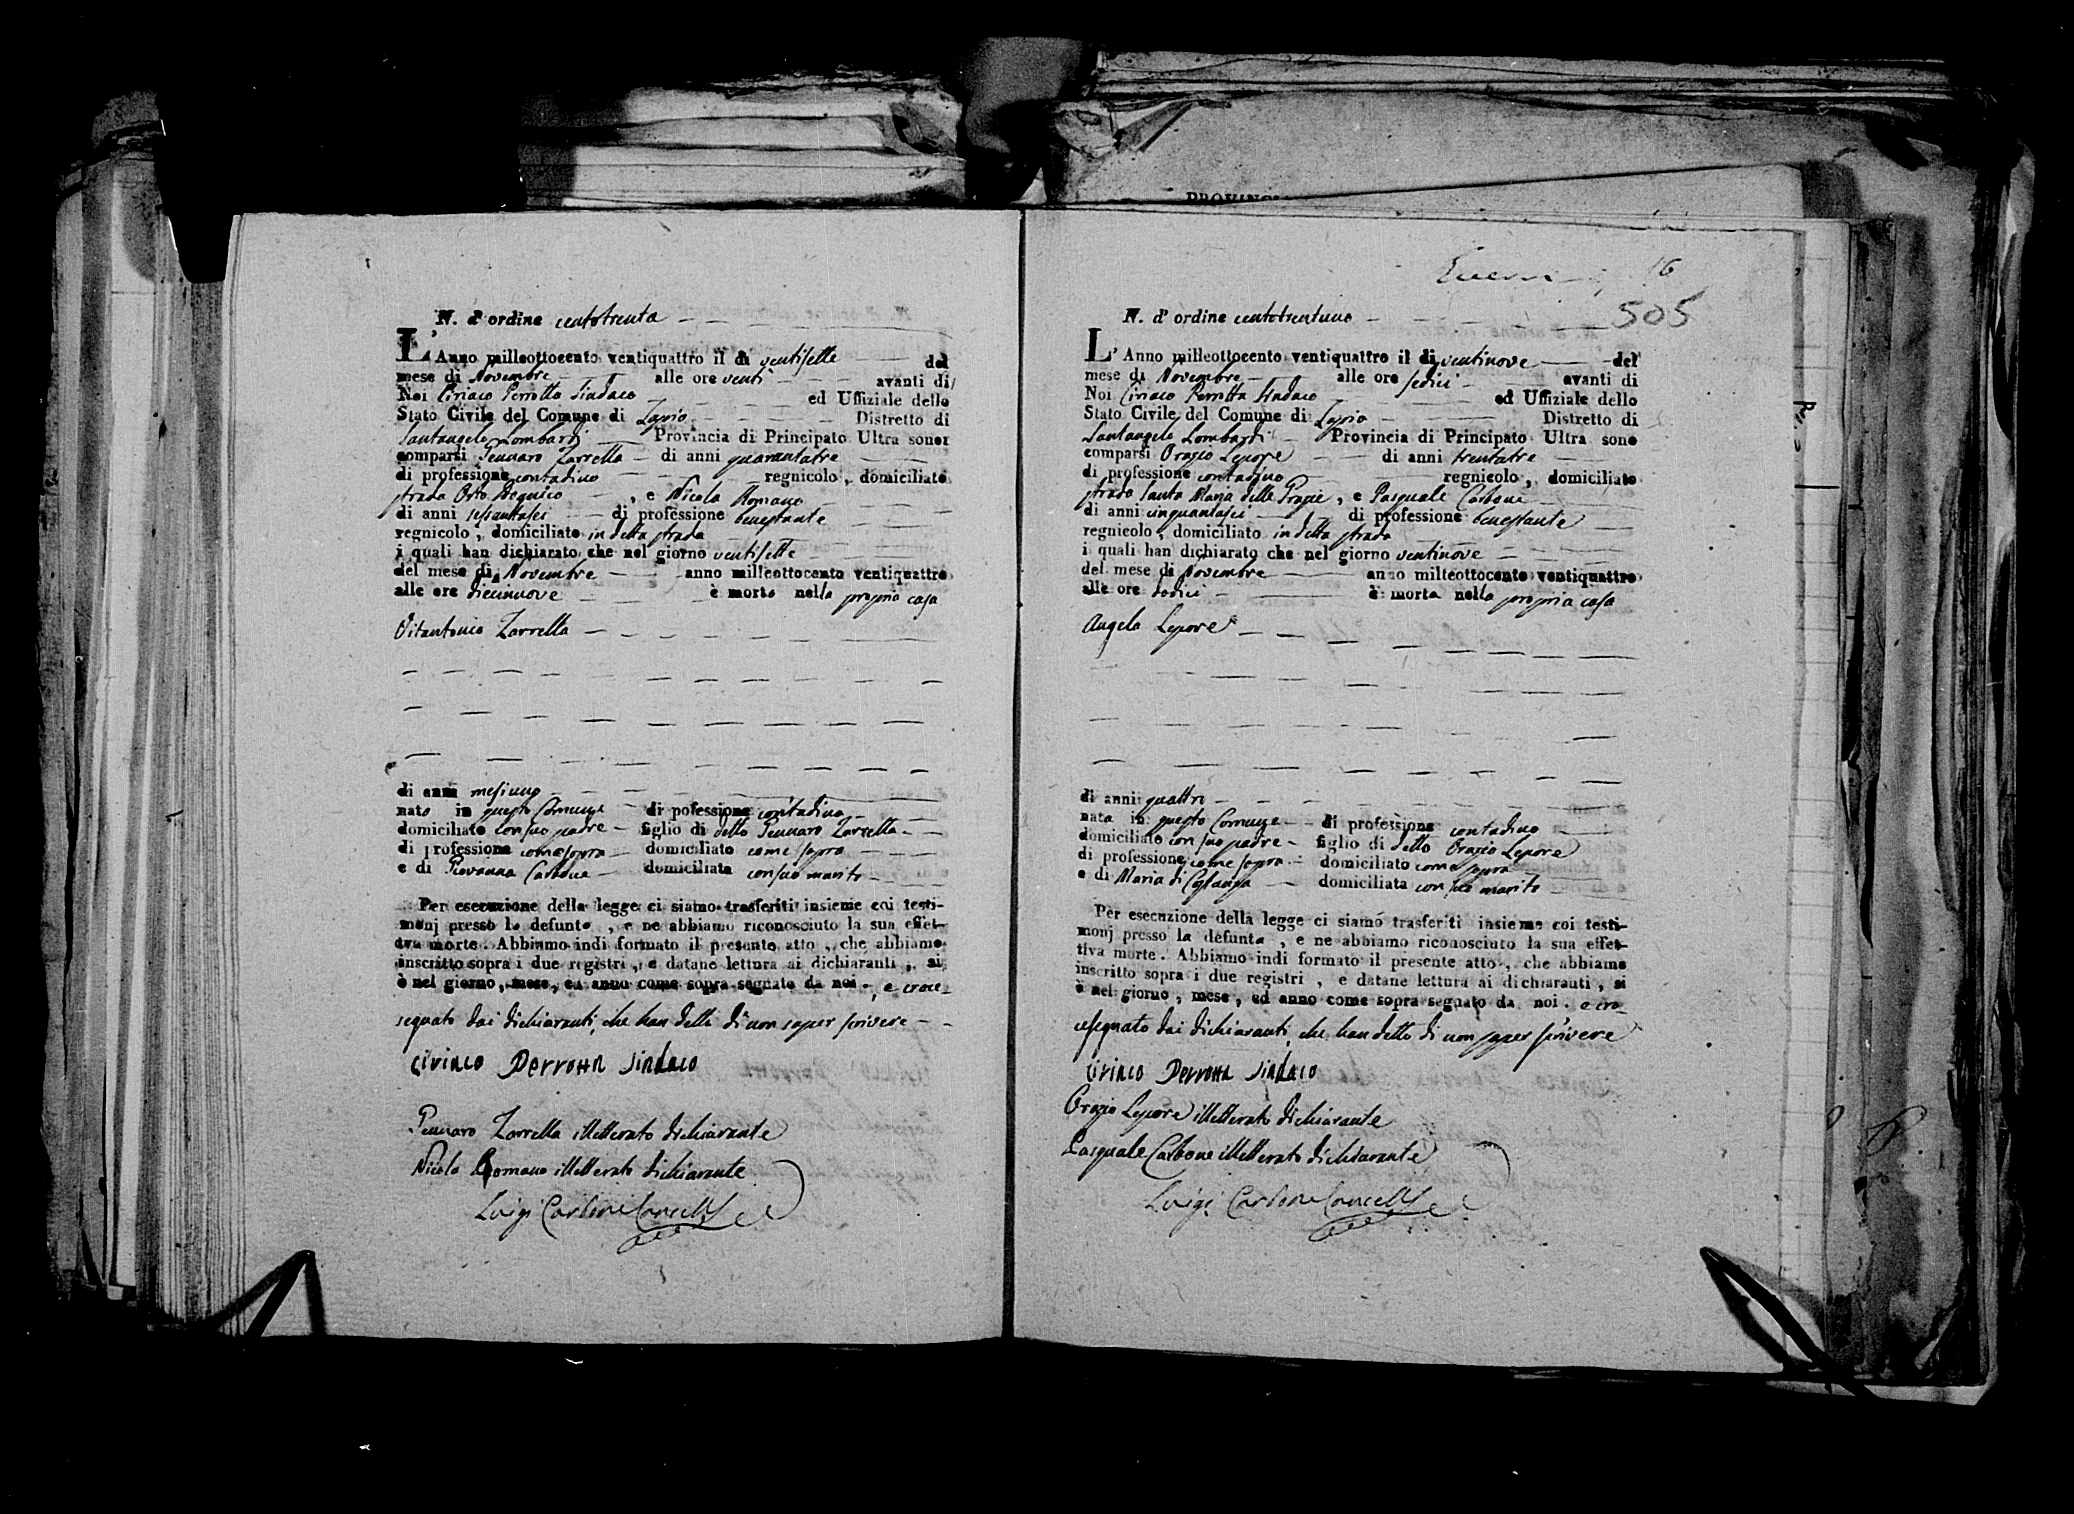 PROVINCI
N. d' ordine centotrenta
L' Anno milleottocento ventiquattro il di ventisette del
mese di Novembre alle ore venti avanti di
Noi Ciriaco Perrotta Sindaco ed Uffiziale dello
Stato Civile del Comune di Lapio Distretto di
Santangelo Lombardi Provincia di Principato Ultra sono
comparsi Gennaro Zarrella di anni quarantatre
di professione contadino regnicolo, domiciliato
strada Orto , e Nicola Romano
di anni sessantasei di professione benestante
regnicolo, domiciliato in detta strada
i quali han dichiarato che nel giorno ventisette
del mese di Novembre anno milleottocento ventiquattro
alle ore diecinnove è morto nella propria casa
Vitantonio Zarrella
di anni mesi uno
nato in questo Comune di pofessione contadino
domiciliato con suo padre figlio di detto Gennaro Zarrella
di professione come sopra domiciliato come sopra
e di Giovanna Carbone domiciliata con suo marito
Per esecuzione della legge ci siamo trasferiti insieme coi testi-
monj presso lo defunto , e ne abbiamo riconosciuto la sua effet-
tiva morte. Abbiamo indi formato il presente atto, che abbiamo
inscritto sopra i due registri, e datane lettura ai dichiaranti, si
è nel giorno, mese, ed anno come sopra segnato da noi, e croce-
segnato dai dichiaranti, che han detto di non saper scrivere
Ciriaco Perrotta Sindaco
Gennaro Zarrella illetterato dichiarante
Nicola Romano illetterato dichiarante
Luigi Carbone Cancell
16
505
N. d' ordine centotrentuno
L' Anno milleottocento ventiquattro il di ventinove del
mese di Novembre alle ore sedici avanti di
Noi Ciriaco Perrotta Sindaco ed Uffiziale dello
Stato Civile del Comune di Lapio Distretto di
Santangelo Lombardi Provincia di Principato Ultra sono
comparsi Orazio Lepore di anni trentatre
di professione contadino regnicolo, domiciliato
strada Santa Maria delle Grazie, e Pasquale Carbone
di anni cinquantasei di professione benestante
regnicolo, domiciliato in detta strada
i quali han dichiarato che nel giorno ventinove
del mese di Novembre anno milleottocento ventiquattro
alle ore dodici è morta nella propria casa
Angela Lepore
di anni quattro
nata in questo Comune di professione contadino
domiciliato con suo padre figlio di detto Orazio Lepore
di professione come sopra domiciliato come sopra
e di Maria di Costanza domiciliata con suo marito
Per esecuzione della legge ci siamo trasferiti insieme coi testi-
monj presso la defunta , e ne abbiamo riconosciuto la sua effet-
tiva morte. Abbiamo indi formato il presente atto, che abbiamo
inscritto sopra i due registri, e datane lettura ai dichiaranti, si
è nel giorno, mese, ed anno come sopra segnato da noi. e cro-
cesegnato dai dichiaranti, che han detto di non saper scrivere
Ciriaco Perrotta Sindaco
Orazio Lepore illetterato dichiarante
Pasquale Carbone illetterato dichiarante
Luigi Carbone Cancell